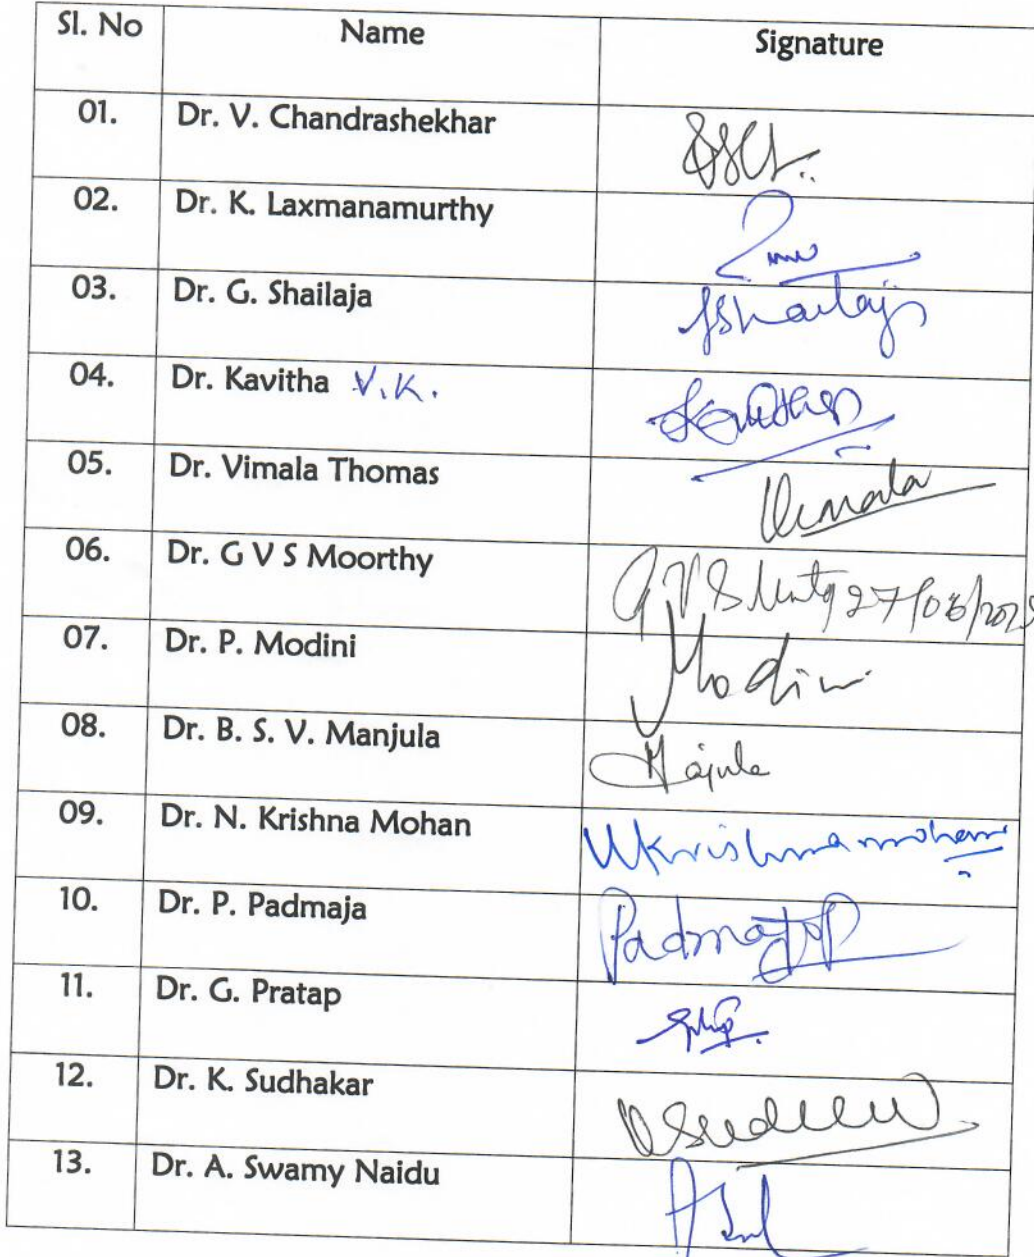 Sl. No Name Signature
01. Dr. V. Chandrashekhar
02. Dr. K. Laxmanamurthy
03. Dr. G. Shailaja GShailaja
04. Dr. Kavitha V.K. Kavitha
05. Dr. Vimala Thomas Vimala
06. Dr. G V S Moorthy
07. Dr. P. Modini Modini
08. Dr. B. S. V. Manjula
09. Dr. N. Krishna Mohan NKrishnamohan
10. Dr. P. Padmaja Padmaja P
11. Dr. G. Pratap
12. Dr. K. Sudhakar
13. Dr. A. Swamy Naidu